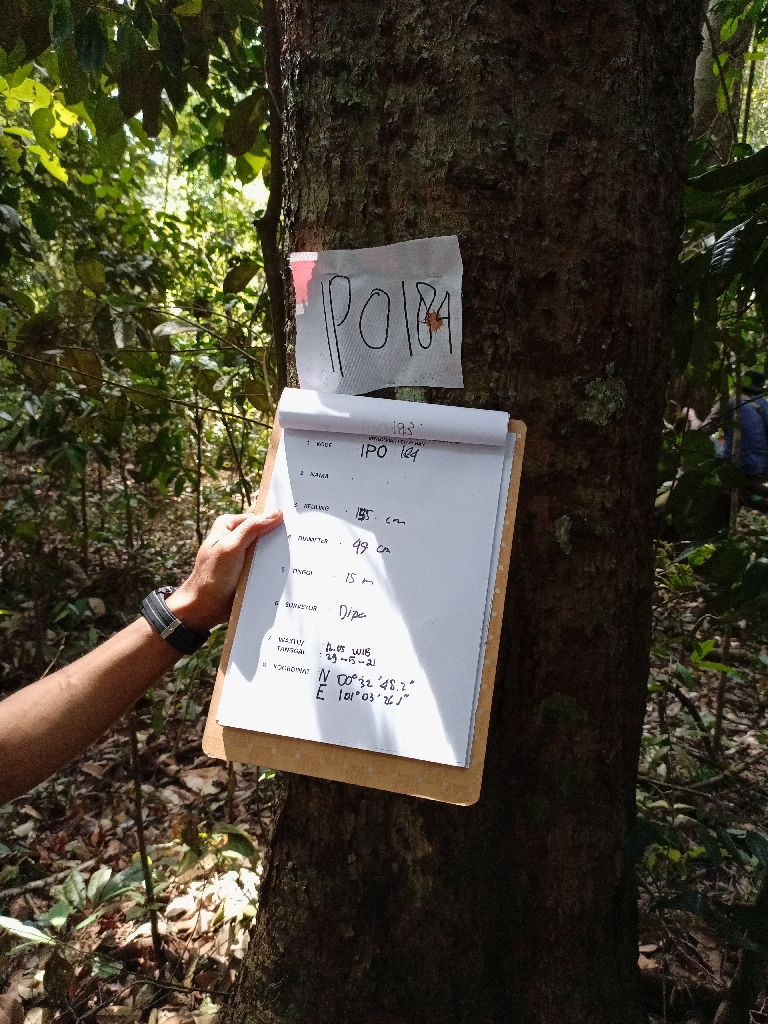 IPO 184
183
1 KODE IPO 184
2 NAMA . .
3 KELILING . 155 . cm
4 DIAMETER . 49 cm
5 TINGGI . 15 m
6 SURVEYOR . Dipo
7 WAKTU/ : 12.05 WIB
TANGGAL : 29-15-21
8 KOORDINAT N 00° 32' 48.2"
E 101° 03' 26.1"